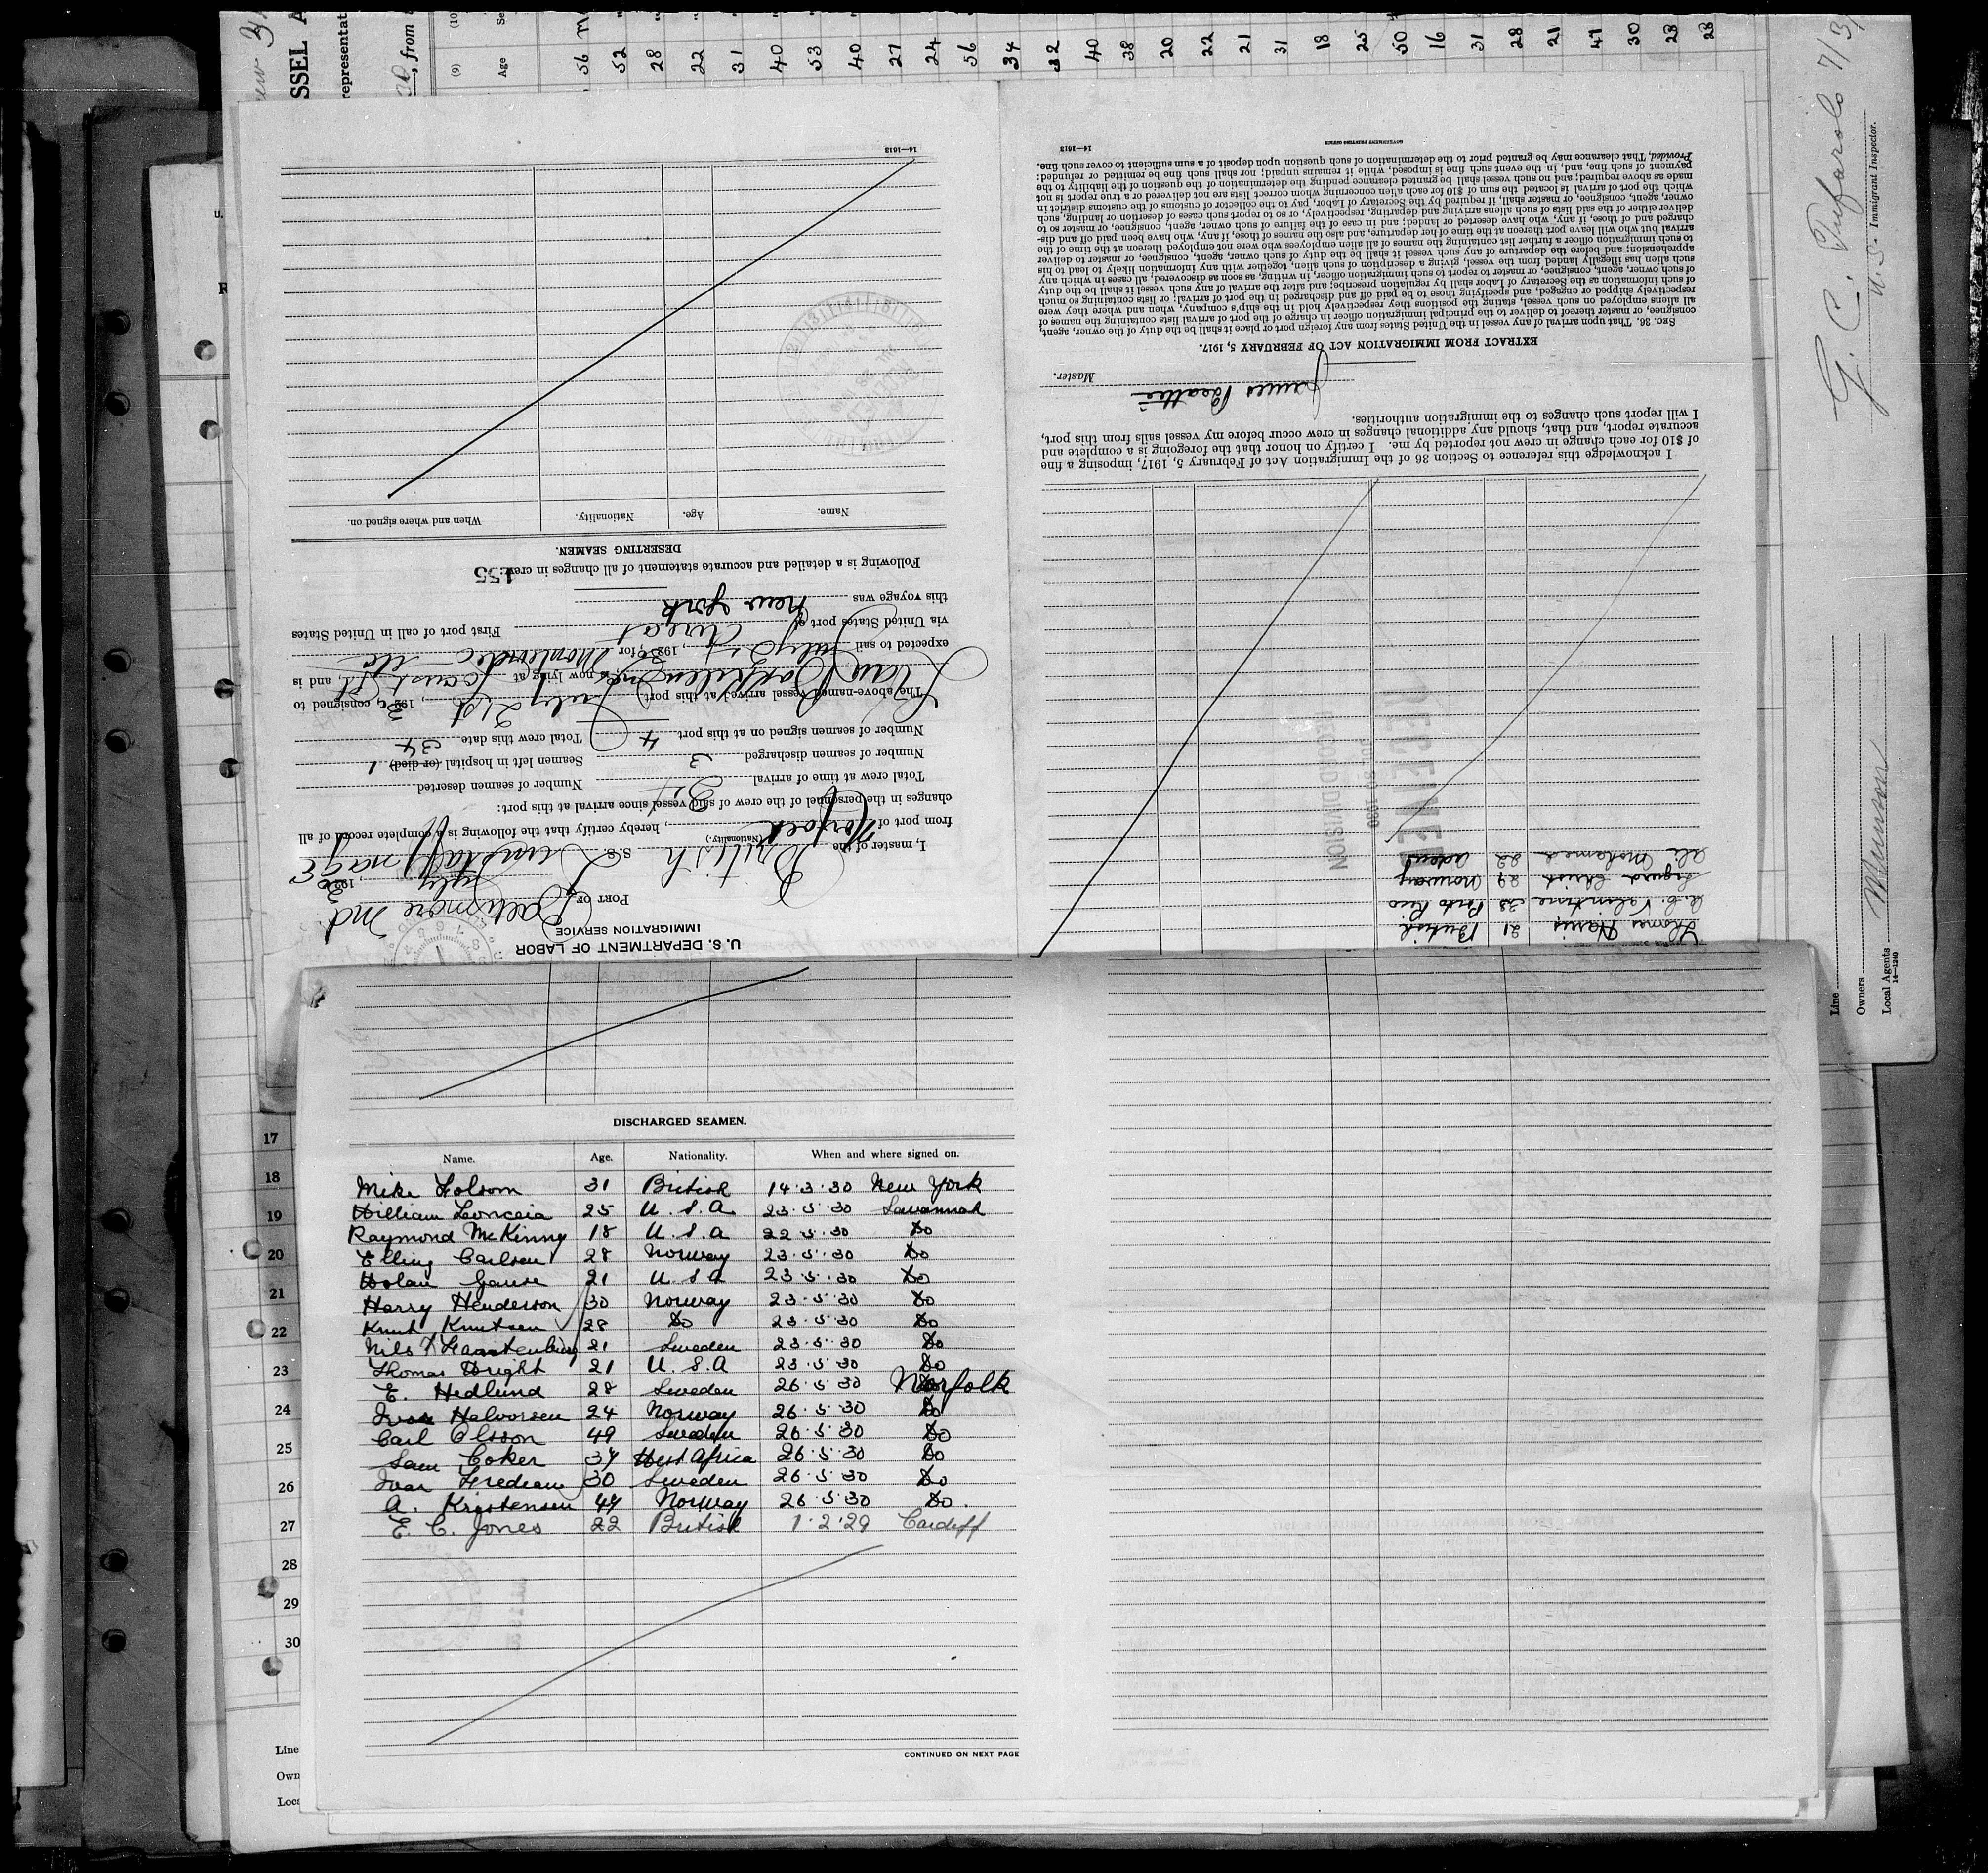 DISCHARGED SEAMEN.
Name. Age. Nationality. When and where signed on.
Mike Folsom 31 British 14.3.30 New York
William 25 U.S.A 23.5.30 Savannah
Raymond McKinny 18 U.S.A 22.5.30 Do
Elling Carlsen 28 Norway 23.5.30 Do
21 U.S.A 23.5.30 Do
Harry Henderson 30 Norway 23.5.30 Do
Knut Knutsen 28 Do 23.5.30 Do
Nils 21 Sweden 23.5.30 Do
Thomas Wright 21 U.S.A 23.5.30 Do
E. Hedlund 28 Sweden 26.5.30 Norfolk
Ivar Halvorsen 24 Norway 26.5.30 Do
Carl Olsson 49 Sweden 26.5.30 Do
Sam Coker 34 West Africa 26.5.30 Do
Ivar 30 Sweden 26.5.30 Do
A. Kristensen 44 Norway 26.5.30 Do.
E. C. Jones 22 British 1.2.29 Cardiff
CONTINUED ON NEXT PAGE
U. S. DEPARTMENT OF LABOR
IMMIGRATION SERVICE
PORT OF Baltimore Md
July, 1930
I, master of the British S.S.
(Nationality.)
from port of Norfolk, hereby certify that the following is a complete record of all
changes in the personnel of the crew of said vessel since arrival at this port:
Total crew at time of arrival 34 Number of seamen deserted
Number of seamen discharged 3 Seamen left in hospital (or died) 1
Number of seamen signed on at this port 4 Total crew this date 34
The above-named vessel arrived at this port July 21st, 1930, consigned to
now lying at and is
expected to sail July, 1930, for Montevideo
via United States port of direct First port of call in United States
this voyage was New York
Following is a detailed and accurate statement of all changes in crew
155
DESERTING SEAMEN.
Name. Age. Nationality. When and where signed on.
14—1613
Thomas Harris 21 British
A. C. Valentine 38 Porto Rico
Sigurd Christ 29 Norway
Ali Mohamed 22 Aden
RECEIVED
1930
RECORD DIVISION
I acknowledge this reference to Section 36 of the Immigration Act of February 5, 1917, imposing a fine
of $10 for each change in crew not reported by me. I certify on honor that the foregoing is a complete and
accurate report, and that, should any additional changes in crew occur before my vessel sails from this port,
I will report such changes to the immigration authorities.
James Beattie
Master.
EXTRACT FROM IMMIGRATION ACT OF FEBRUARY 5, 1917.
Sec. 36. That upon arrival of any vessel in the United States from any foreign port or place it shall be the duty of the owner, agent,
consignee, or master thereof to deliver to the principal immigration officer in charge of the port of arrival lists containing the names of
all aliens employed on such vessel, stating the positions they respectively hold in the ship's company, when and where they were
respectively shipped or engaged, and specifying those to be paid off and discharged in the port of arrival; or lists containing so much
of such information as the Secretary of Labor shall by regulation prescribe; and after the arrival of any such vessel it shall be the duty
of such owner, agent, consignee, or master to report to such immigration officer, in writing, as soon as discovered, all cases in which any
such alien has illegally landed from the vessel, giving a description of such alien, together with any information likely to lead to his
apprehension; and before the departure of any such vessel it shall be the duty of such owner, agent, consignee, or master to deliver
to such immigration officer a further list containing the names of all alien employees who were not employed thereon at the time of the
arrival but who will leave port thereon at the time of her departure, and also the names of those, if any, who have been paid off and dis-
charged and of those, if any, who have deserted or landed; and in case of the failure of such owner, agent, consignee, or master so to
deliver either of the said lists of such aliens arriving and departing, respectively, or so to report such cases of desertion or landing, such
owner, agent, consignee, or master shall, if required by the Secretary of Labor, pay to the collector of customs of the customs district in
which the port of arrival is located the sum of $10 for each alien concerning whom correct lists are not delivered or a true report is not
made as above required; and no such vessel shall be granted clearance pending the determination of the question of the liability to the
payment of such fine, and, in the event such fine is imposed, while it remains unpaid; nor shall such fine be remitted or refunded:
Provided, That clearance may be granted prior to the determination of such question upon deposit of a sum sufficient to cover such fine.
14—1613
GOVERNMENT PRINTING OFFICE
17
18
19
20
21
22
23
24
25
26
27
28
29
30
Line
Own
Loca
SSEL A
representat
, from
(9)
(10)
Age
Se
56 m
52
28
22
31
40
53
40
27
24
56
34
32
40
38
20
22
21
31
18
25
50
16
31
28
21
41
30
23
28
G. C. Tufarolo 7/3
U. S. Immigrant Inspector.
Line
Owners
Local Agents Munson
14—1240